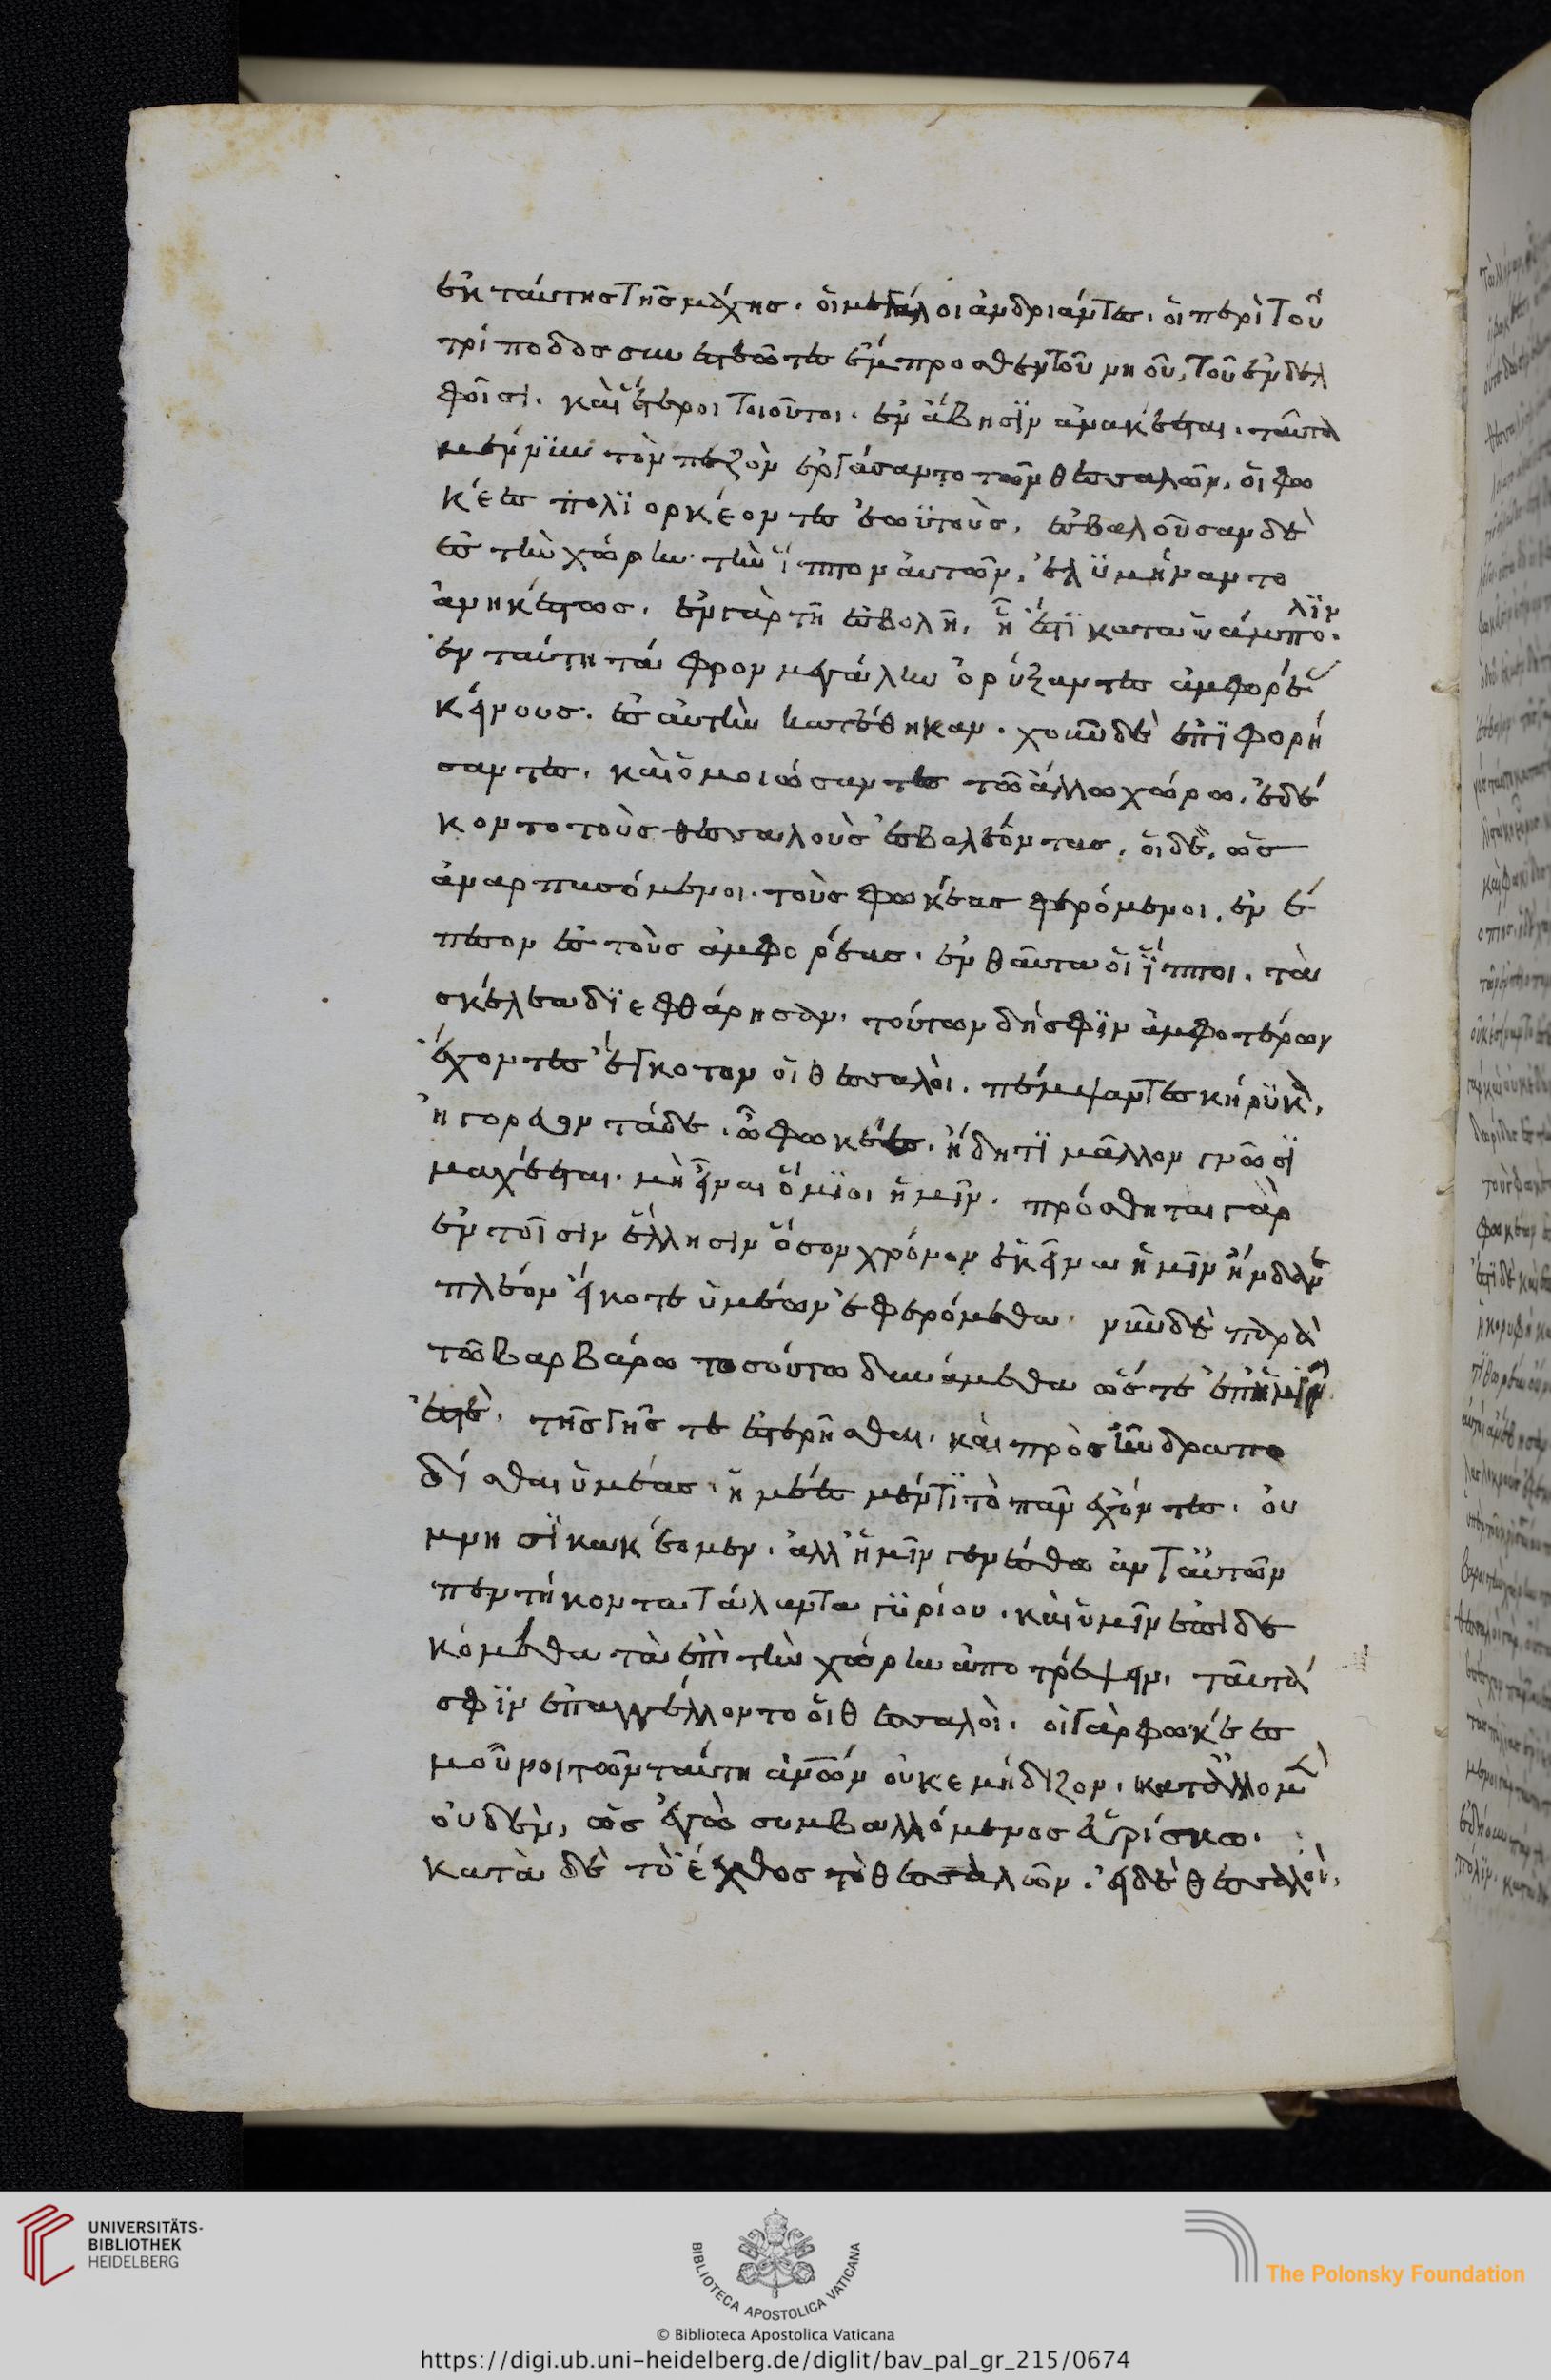 ἐκ ταύτης τῆς μάχης. οἱ μεγάλοι ἀνδριάντες. οἱ περὶ τοῦ
τρίποδος συνεστεῶτες ἔμπροσθεν τοῦ νηοῦ, τοῦ ἐν δελ
φοῖσι. καὶ ἕτεροι τοιοῦτοι. ἐν ἄβησϊν ἀνακέεται. ταῦτα
μέν νϋν τὸν πεζὸν ἐργάσαντο τῶν θεσσαλῶν. οἱ φω
κέες πολϊορκέοντες ἑωϋτοὺς. ἐσβαλοῦσαν δὲ
ἐς τὴν χώρην τὴν ἵππον αὐτῶν. ἐλϋμήναντο
ἀνηκέστως. ἐν γὰρ τῇ ἐσβολῇ, ἥ ἐστϊ κατα ὑάμπολϊν.
ἐν ταύτῃ τάφρον μεγάλην ὀρύξαντες ἀμφορέ
κεινους. ἐς αὐτὴν κατέθηκαν. χοῦν δὲ ἐπϊφορή
σαντες. καὶ ὁμοιώσαντες τῶ ἄλλω χώρω. ἐδέ
κοντο τοὺς θεσσαλοὺς ἐσβαλέοντας. οἱ δὲ, ὡς
ἀναρπασόμενοι τοὺς φωκέας φερόμενοι. ἐν έ
πεσον ἐς τοὺς ἀμφορέας. ἐνθαῦτα οἱ ἵπποι. τὰ
σκέλεα δϊεφθάρησαν. τούτων δή σφϊν ἀμφοτέρων
ἔχοντες ἔγκοτον οἱ θεσσαλοὶ. πέμψαντες κήρϋκα,
ἠγόρευον τάδε. ὦ φωκέες. ἤδη τϊ μᾶλλον γνωσϊ
μαχέεται. μὴ εἶναι ὅμϊοι ἡμῖν. πρόσθηται γὰρ
ἐν τοῖσιν ἕλλησιν ὅσον χρόνον ἐκεῖνα ἡμῖν ἥνδανε
πλέον εἴκοτε ὑμέων ἐφερόμεθα. νῦν δὲ παρὰ
τῶ βαρβάρω τοσούτω δυνάμεθα ὥστε ἐπ' ἡμῖν
ἐστὶ. τῆς γῆς τε ἐστερῆσθαι. καὶ πρὸς ἠνδραπο
δίσθαι ὑμέας. ἡμέες μέντϊ τὸ πᾶν ἔχοντες. οὐ
μνησϊκακέομεν. ἀλλ' ἡμῖν γενέσθω ἀντ' αὐτῶν
πεντήκοντα τάλαντα ἀργυρίου. καὶ ὑμῖν ὑποδε
κόμεθα τὰ ἐπὶ τὴν χώρην ἀποτρέψειν. ταῦτά
σφϊν ἐπαγγέλλοντο οἱ θεσσαλοὶ. οἱ γὰρ φωκέες
μοῦνοι τῶν ταύτῃ ἀνῶν οὐκ ἐμήδιζον. κατ' ἄλλο μὲν
οὐδὲν, ὡς ἐγὼ συμβαλλόμενος εὑρίσκω.
κατὰ δὲ τὸ ἔχθος τὸ θεσσαλῶν. εἰ δὲ θεσσαλοὶ,
UNIVERSITÄTS-
BIBLIOTHEK
HEIDELBERG
BIBLIOTECA APOSTOLICA VATICANA
The Polonsky Foundation
© Biblioteca Apostolica Vaticana
https://digi.ub.uni-heidelberg.de/diglit/bav_pal_gr_215/0674